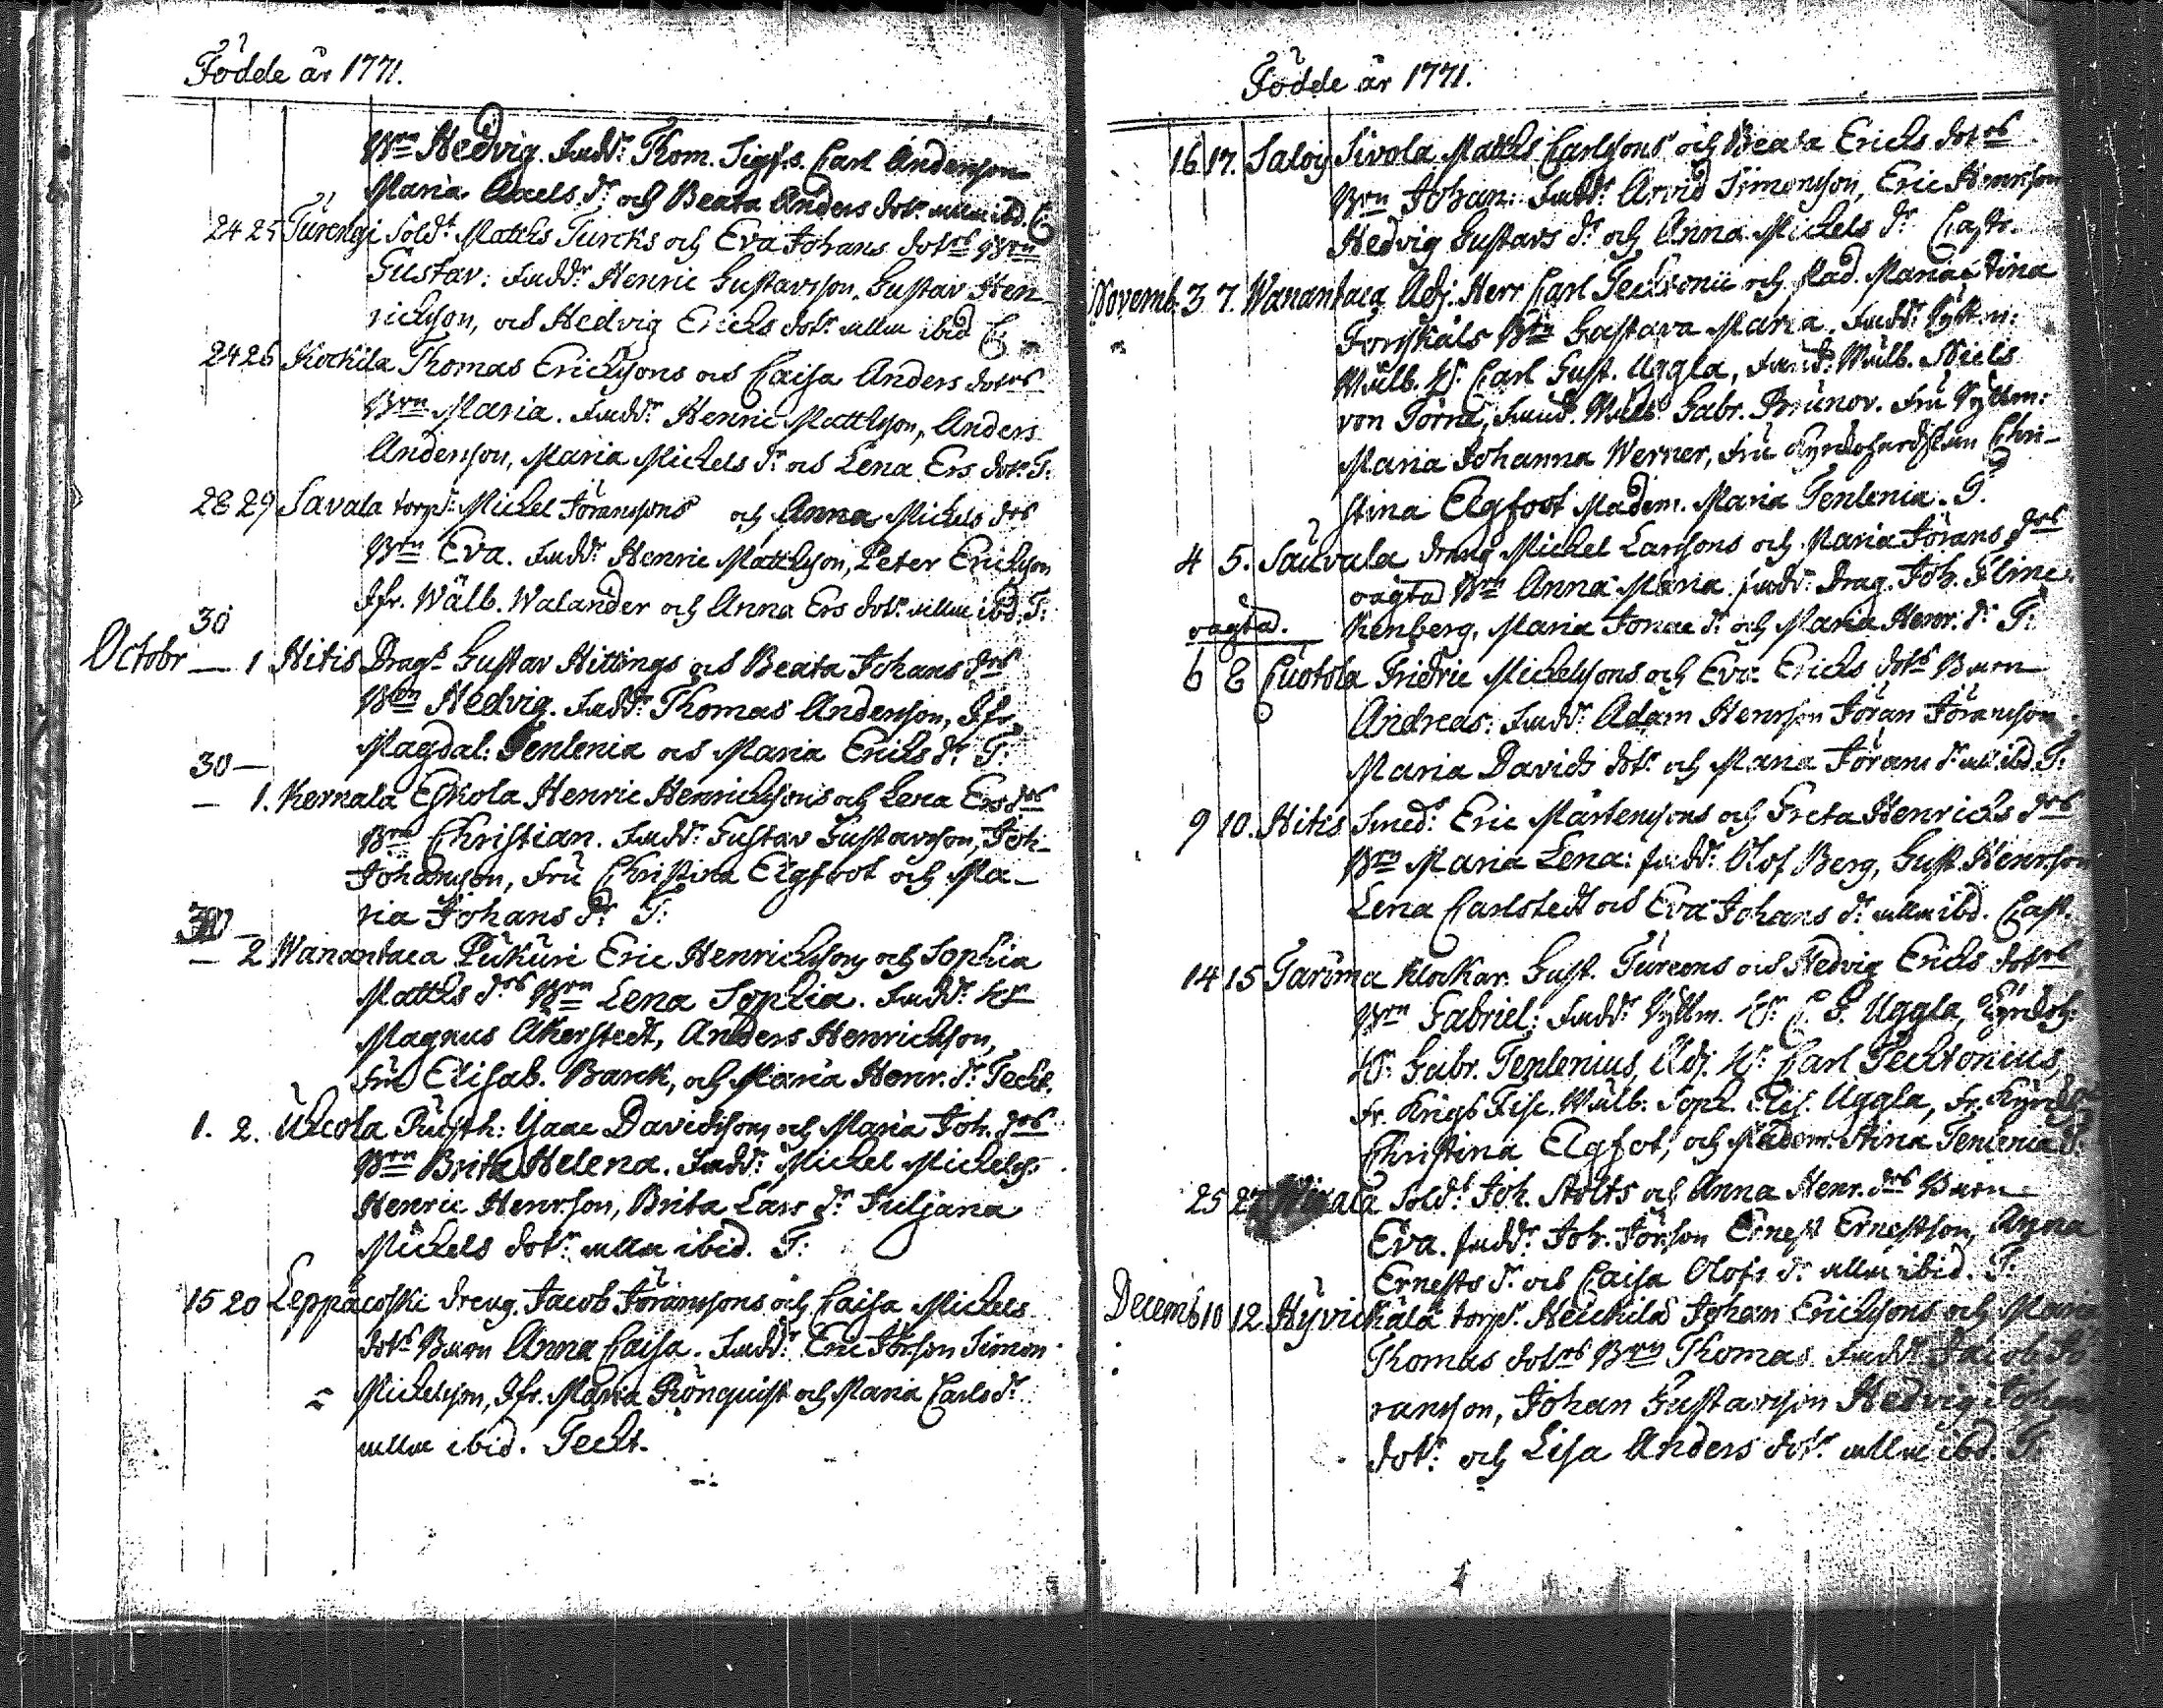 Födde år 1771.
Brn Hedvig. Fadd: Thom. Sigfs. Carl Andersson
Maria Axels dr och Beata Anders dotr. allm ibd. C
24 25 Türengi Soldt Matths Turcks och Eva Johans dotrs Brn
Gustav: Faddr Henric Gustavsson, Gustav Hen-
ricksson, och Hedvig Erichs dotr allm ibid C
24 26 Kockila Thomas Ericksons och Caisa Anders dotrs
Brn Maria. Faddr Henric Mattsson, Anders
Andersson, Maria Michels dr och Lena Ers dotr. T:
28 29 Savala torp: Michel Göranssons och Anna Michels drs
Brn Eva. Faddr Henric Mattsson, Peter Ericsson
Jfr. Wälb. Walander och Anna Ers dotr. allm ibd. T:
30
Octobr — 1 Hitis Drags Gustav Hittings och Beata Johans drs
Brn Hedvig. Faddr Thomas Andersson, Jfr
Magdal: Tenlenia och Maria Erichs dr T:
30 —
— 1. Kernala Eskola Henric Henricksons och Lena Ers drs
Brn Christian. Faddr: Gustav Gustavsson, Joh-
Johansson, Fru Christina Elgfoot och Ma-
ria Johans dr T:
30 —
— 2 Wanantaca Pukuri Eric Henricksons och Sophia
Matths drs Brn Lena Sophia. Faddr: Hr
Magnus Åkerstedt, Anders Henricksson,
Fru Elisab. Barck, och Maria Henr. dr Techt.
1. 2. Uhcola Rusth: Isaac Davidssons och Maria Joh. drs
Brn Brita Helena. Faddr: Michel Michelss.
Henric Henrsson, Brita Lars dr Juljana
Michels dotr: allm ibid. T:
15 20 Leppäcoski dreng. Jacob Göranssons och Caisa Michels
dotrs Barn Anna Caisa. Faddr: Eric Jörsson Simon
Michelsson, Jfr. Maria Rönquist och Maria Carls dr
allm ibid. Techt.
Födde år 1771.
16 17. Saloy Sivola Matths Carlsons och Beata Erichs dotrs
Brn Johan: Faddr. Arvid Simonsson, Eric Henrsson
Hedvig Gustavs dr och Anna Michels dr Castr.
Novemb. 3 7. Wanantaca Adj. Herr Carl Techtonii och Mad. Maria Stina
Forsskåls Brn Gustava Maria. Faddr: Ryttm:
Wälb. Hr Carl Gust. Uggla, Wälb. Niels
von Törne, Wälb. Gabr. Brunov. Fru Ryttm:
Maria Johanna Werner, Fru Kyrkoherdskan Chri-
stina Elgfoot Madem. Maria Tenlenia. T.
4 5. Sauvala dräng Michel Larssons och Maria Jörans drs
oägtad Brn Anna Maria. Faddr: Drag. Joh. Flinc
oägtad. Kenberg, Maria Jonae dr och Maria Henr. dr T:
6 8 Cuotola Fridric Michelsons och Eva Erichs dotrs Barn
Andreas: Faddr. Adam Henrsson Jöran Jöransson
Maria Davids dotr. och Maria Jörans dr all. ibd. T.
9 10. Hitis Smed: Eric Mårtensons och Greta Henrichs drs
Brn Maria Lena: Faddr: Olof Berg, Gust. Henrsson
Lena Carlstedt och Eva Johans dr allm ibd. Cast.
14 15 Taruma Klockar. Gust. Tureens och Hedvig Erichs dotrs
Brn Gabriel: Faddr Ryttm. Hr C. G. Uggla, Kyrkoh:
Hr Gabr. Tenlenius, Adj. Hr Carl Techtonius,
Fr. Krigs Fisc. Wälb: Soph. Elis. Uggla, Fr. Kyrko
Christina Elgfot, och Madem: Stina Tenlenia T:
25 27 Soldt Joh. Stolts och Anna Henr. drs Barn
Eva. Faddr: Joh. Jörsson Ernest Ernestson, Anna
Ernests dr och Caisa Olofs dr allm ibid. T.
Decemb 10 12 Hyvickälä torpr. Heickilä Johan Ericksons och Maria
Thomas dotrs Brn Thomas. Faddr Jacob Jö-
ransson, Johan Gustavsson Hedvig Johans
dotr: och Lisa Anders dotr allm ibd. T.